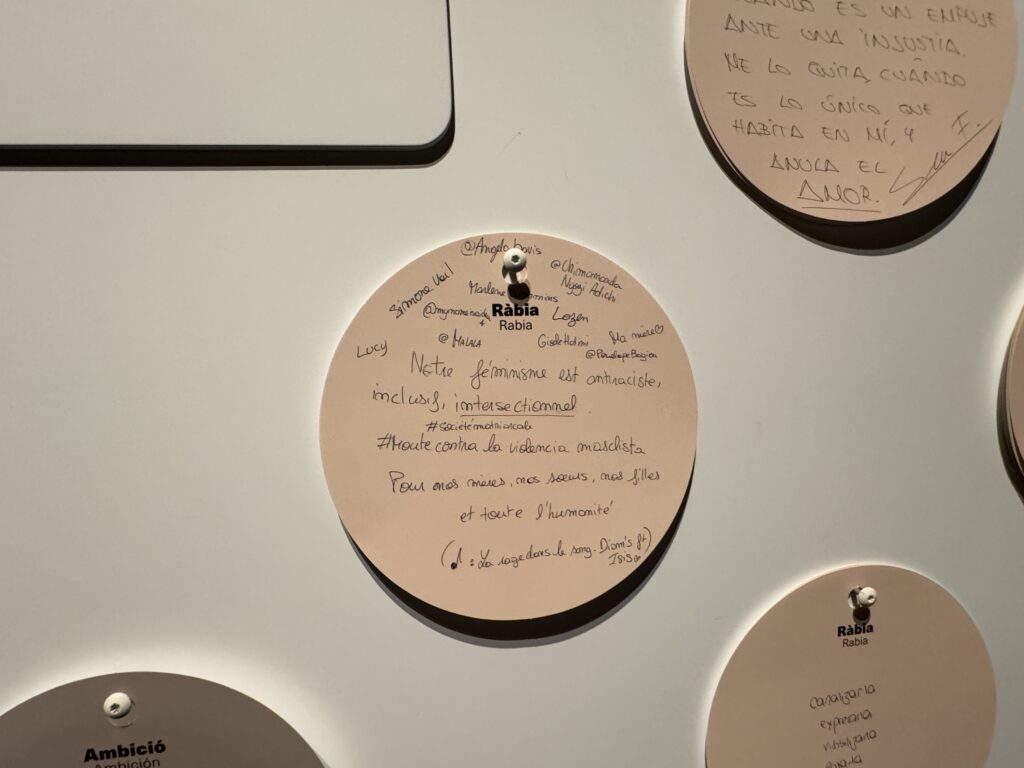 CUANDO ES UN EMPUJE
ANTE UNA INJUSTIA.
ME LO QUITA, CUÁNDO
ES LO ÚNICO QUE
HABITA EN MÍ, Y
ANULA EL
AMOR.
@Angela Davis
@Chimamanda
Ngozi Adichi
Simone Veil
Marlene
Ràbia
Rabia
Lozen
@MALALA
Gisèle Halimi
Ma mère♡
Lucy
@PénélopeBagieu
Notre féminisme est antiraciste,
inclusif, intersectionnel.
#Sociétématriarcale
#Moute contra la violencia masclista
Pour nos mères, nos sœurs, nos filles
et toute l'humanité
(♪ : La rage dans le sang. Diam's ft)
Ràbia
Rabia
canalizarla
expresarla
visibilizarla
Ambició
Ambición